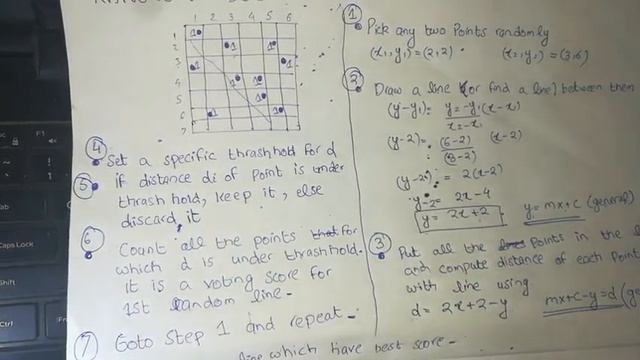 1 2 3 4 5 6
1
2
3
4
5
6
7
①
Pick any two Points randomly
(x₁,y₁)=(2,2)
②
Draw a line (or find a line) between them
(y-2)=
(6-2)
(x-2)
= 2(x-2)
y-2= 2x-4
y= 2x+2
y=mx+c (general)
③
Put all the Points in the
and compute distance of each Point
with line using
d = 2x+2-y
mx+c-y=d
④
Set a specific thrashhold for d
⑤
if distance di of Point is under
thrashhold, keep it, else
discard it
⑥
Count all the points for
which d is under thrashhold.
it is a voting score for
1st random line-
⑦
Goto Step 1 and repeat-
line which have best score-